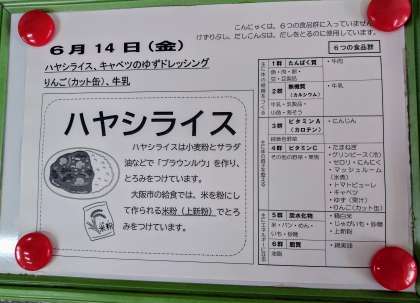 こんにゃくは、6つの食品群に入っていません。
けずりぶし、だしこんぶは、だしをとるのに使用しています。
6月14日(金)
ハヤシライス、キャベツのゆずドレッシング
りんご(カット缶)、牛乳
ハヤシライス
ハヤシライスは小麦粉とサラダ
油などで「ブラウンルウ」を作り、
とろみをつけています。
大阪市の給食では、米を粉にし
て作られる米粉(上新粉)でとろ
みをつけています。
米粉
6つの食品群
1群 たんぱく質
魚・肉・卵・
豆・豆製品
・牛肉
2群 無機質
(カルシウム)
牛乳・乳製品・
小魚・海そう
・牛乳
3群 ビタミンA
(カロテン)
緑黄色野菜
・にんじん
4群 ビタミンC
その他の野菜・果物
・たまねぎ
・グリンピース(冷)
・セロリ・にんにく
・マッシュルーム
(水煮)
・トマトピューレ
・キャベツ
・ゆず(果汁)
・りんご(カット缶)
5群 炭水化物
米・パン・めん・
いも・砂糖
・精白米
・じゃがいも・砂糖
・上新粉
6群 脂質
油脂
・綿実油